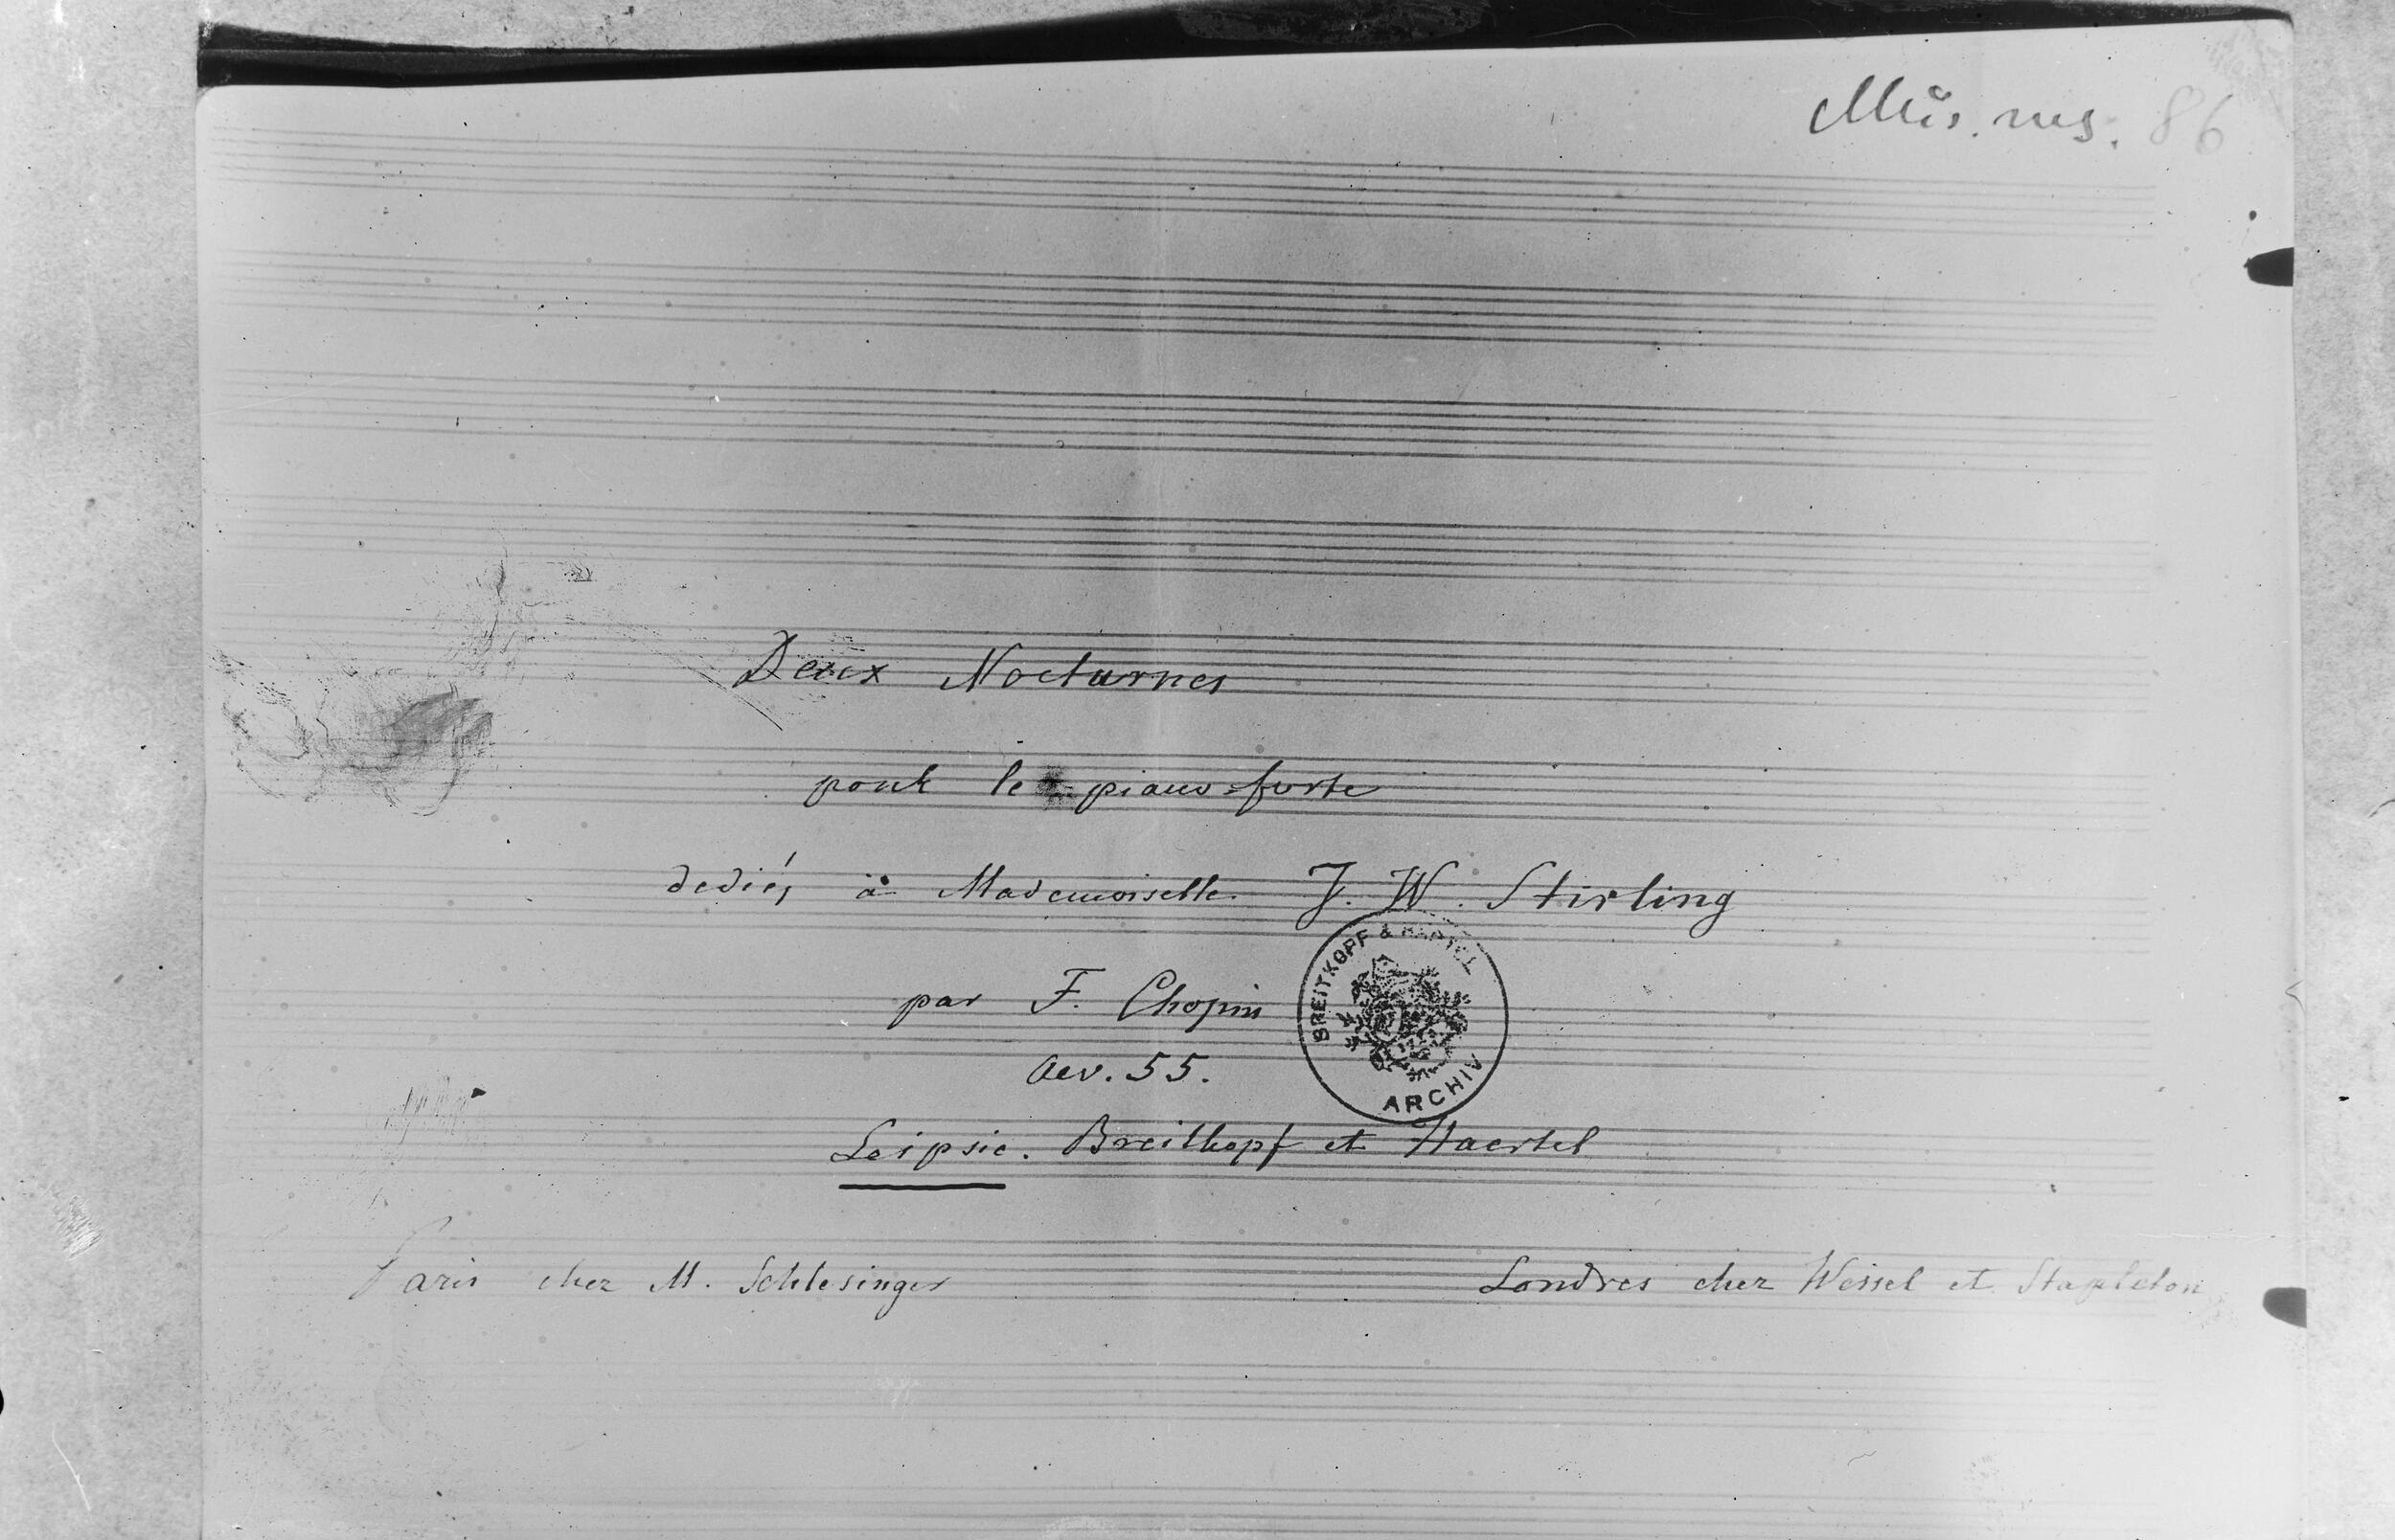 Mus. ms. 86
Deux Nocturnes
pour le piano=forte
dediés à Mademoiselle J. W. Stirling
par F. Chopin
BREITKOPF & HÄRTEL
ARCHIV
Oev. 55.
Leipsic. Breitkopf et Haertel
Paris chez M. Schlesinger
Londres chez Wessel et Stapleton